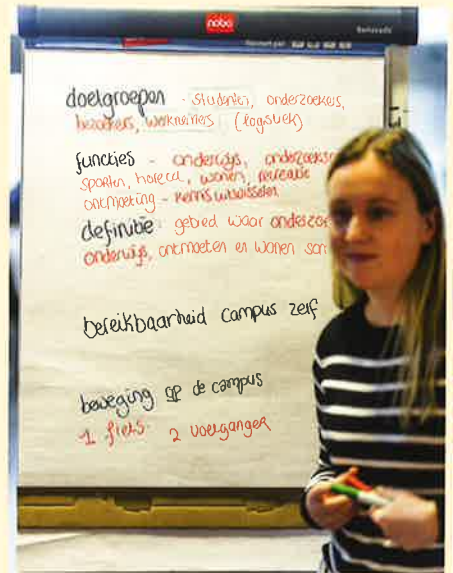 nobo
doelgroepen - studenten, onderzoekers,
bezoekers, werknemers (logistiek)
functies - onderwijs, onderzoeks
sporten, horeca, wonen, recreatie
ontmoeting - kennis uitwisselen
definitie: gebied waar onderzoe
onderwijs, ontmoeten en wonen sam
bereikbaarheid campus zelf
beweging op de campus
1 fiets 2 voetganger